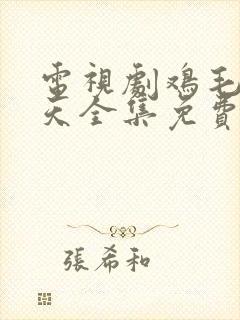 電視劇鸡毛
天全集免費
張希和